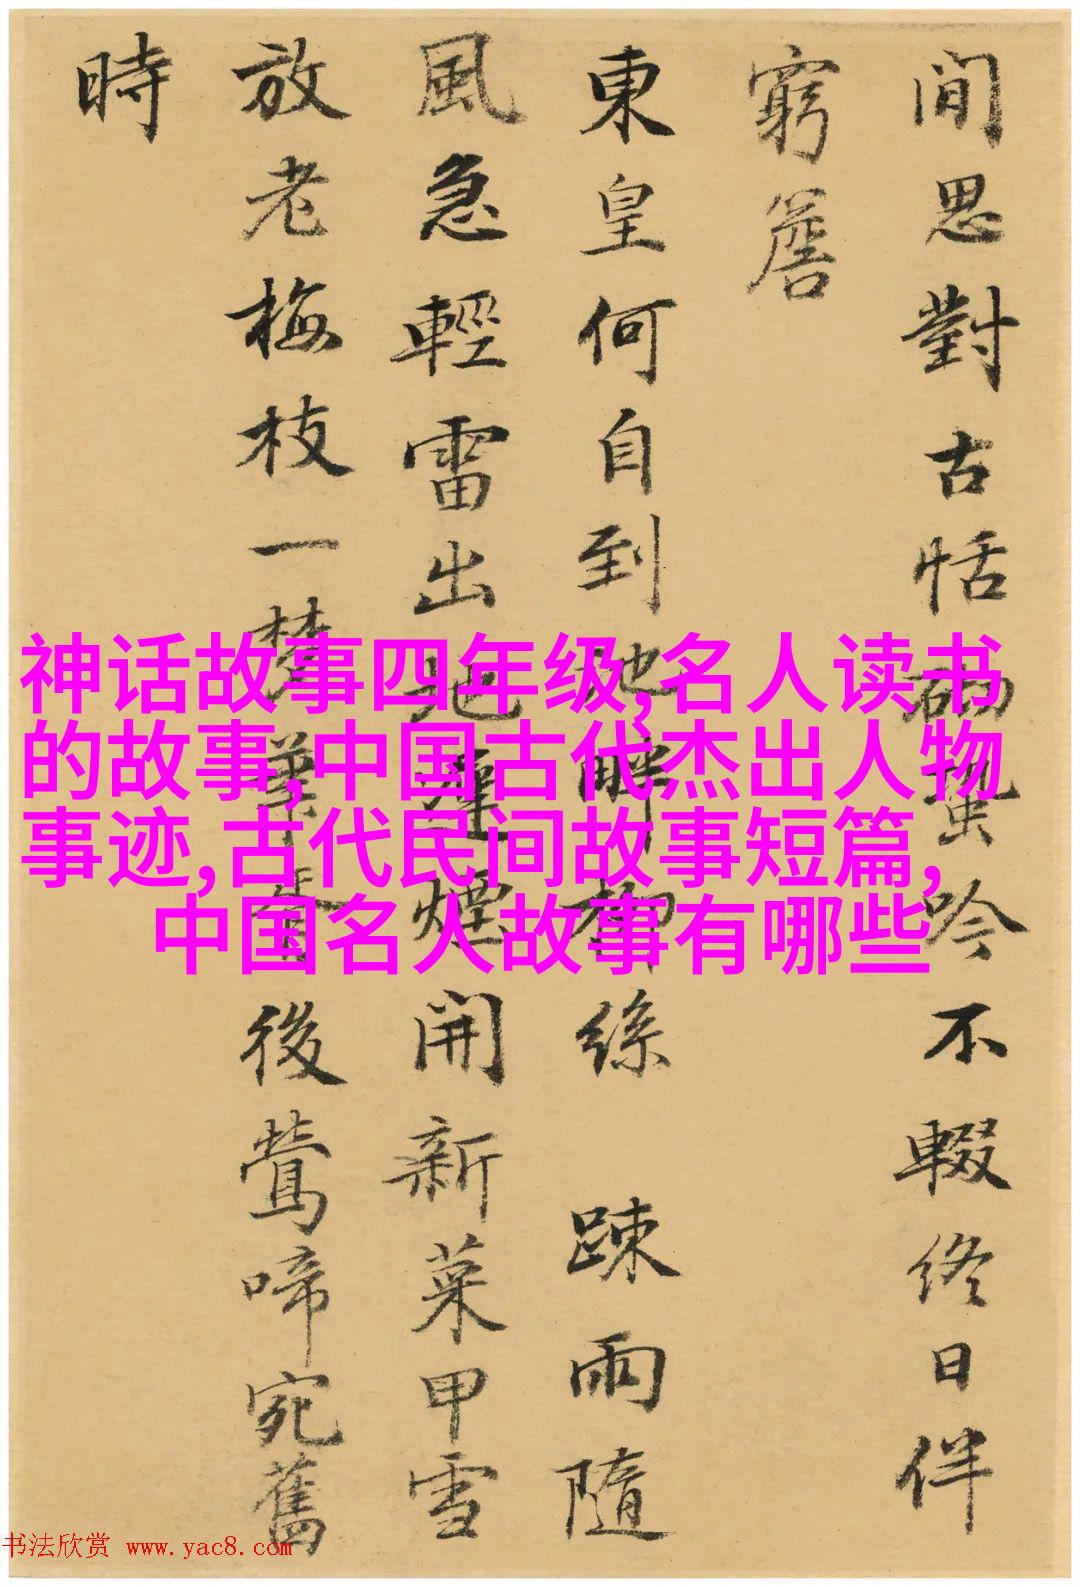 閒思對古恬砌蛩吟不輟終日伴
窮簷
東皇何自到池畔柳絲踈雨隨
風急輕雷出地遲煙開新菜甲雪
放老梅枝一夢華胥後鶯啼宛舊
時
神话故事四年级,名人读书
的故事,中国古代杰出人物
事迹,古代民间故事短篇,
中国名人故事有哪些
书法欣赏 www.yac8.com